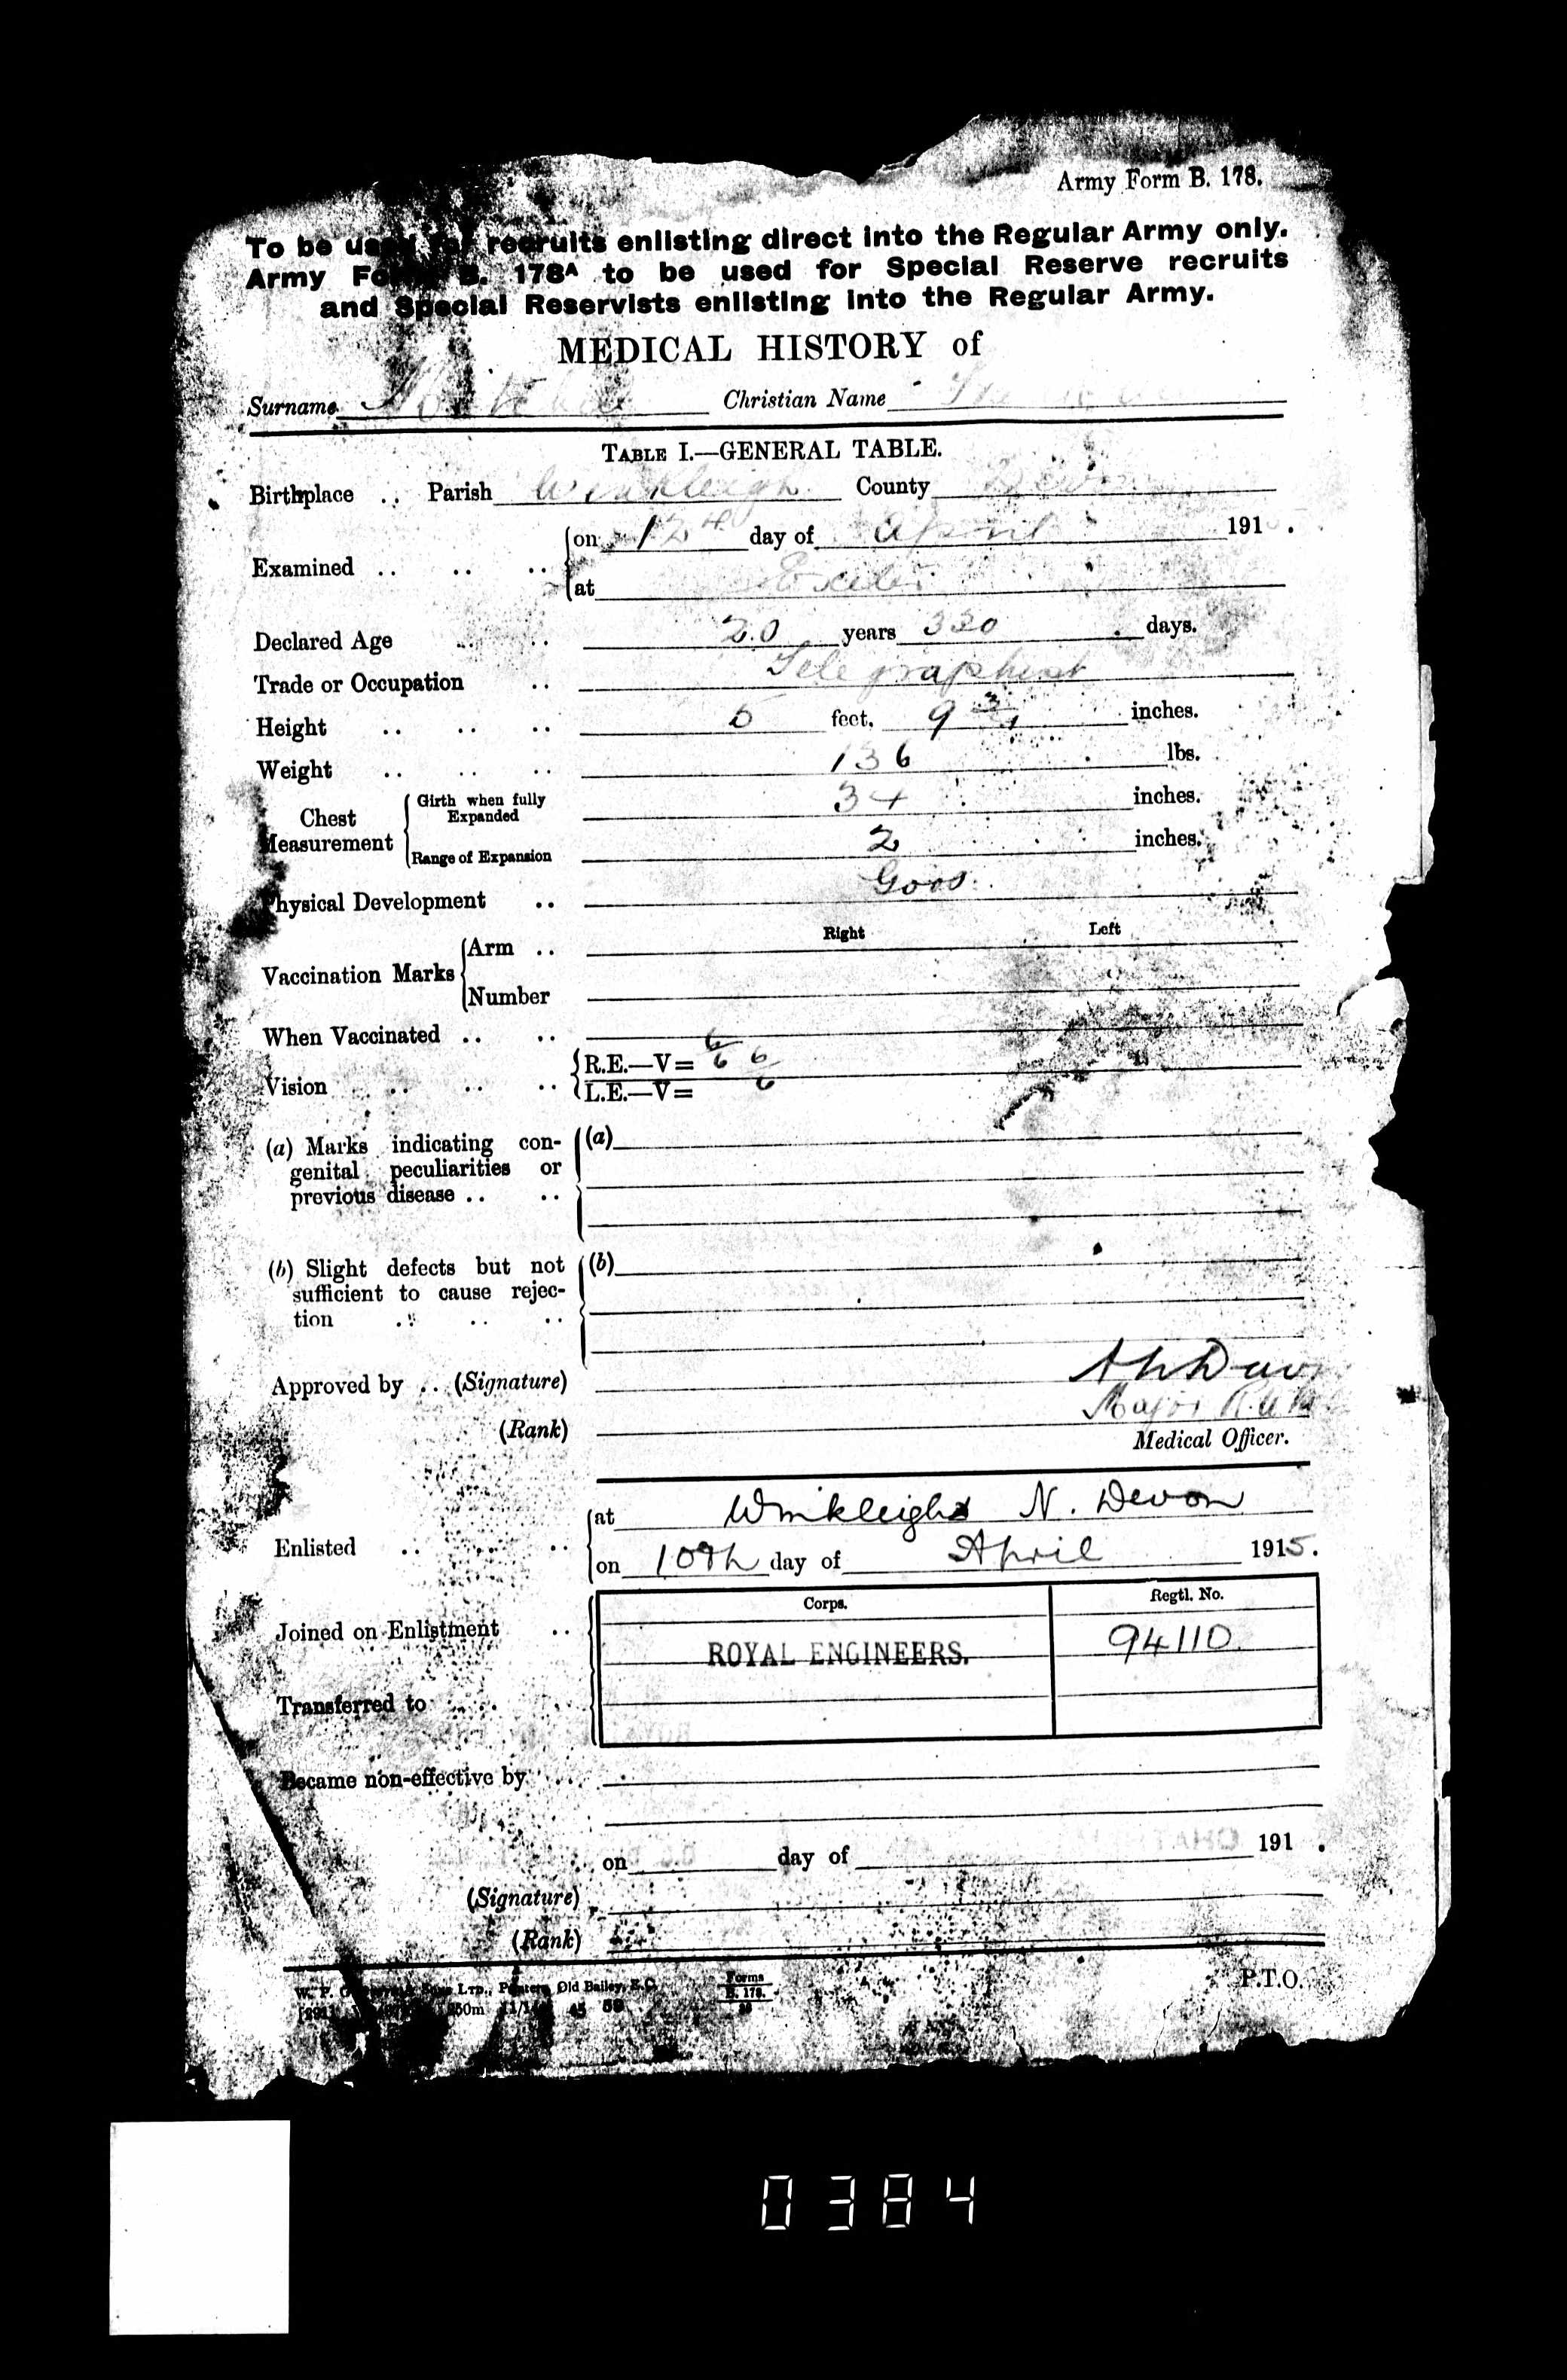 Army Form B. 178.
To be used for recruits enlisting direct into the Regular Army only.
Army Form B. 178A to be used for Special Reserve recruits
and Special Reservists enlisting into the Regular Army.
MEDICAL HISTORY of
Surname Christian Name
TABLE I.—GENERAL TABLE.
Birthplace .. Parish Winkleigh County Devon
Examined .. .. .. on 12th day of April 191 .
at Exeter
Declared Age .. .. 20 years 330 days.
Trade or Occupation .. Telegraphist
Height .. .. .. 5 feet. 9 3/4 inches.
Weight .. .. .. 136 lbs.
Chest Measurement Girth when fully Expanded 34 inches.
Range of Expansion 2 inches.
Physical Development .. Good.
Right Left
Vaccination Marks Arm ..
Number
When Vaccinated .. ..
Vision .. .. .. R.E.—V= 6/6
L.E.—V= 6/6
(a) Marks indicating con- (a)
genital peculiarities or
previous disease .. ..
(b) Slight defects but not (b)
sufficient to cause rejec-
tion .. .. ..
Approved by .. (Signature)
(Rank) Major
Medical Officer.
Enlisted .. .. at Winkleigh N. Devon
on 10th day of April 1915.
Corps. Regtl. No.
Joined on Enlistment .. ROYAL ENGINEERS. 94110
Transferred to
Became non-effective by
on day of 191 .
(Signature)
(Rank)
LTD., Printers, Old Bailey, E.C.
Forms
B. 178.
P.T.O.
0384